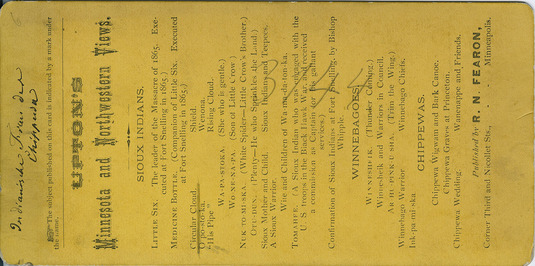 Indianische Frau der
Chippewa
The subject published on this card is indicated by a mark under
the name.
UPTON'S
Minnesota and Northwestern Views.
SIOUX INDIANS.
LITTLE SIX. The leader of the Massacre of 1862. Exe-
cuted at Fort Snelling in 1865.)
MEDICINE BOTTLE. (Companion of Little Six. Executed
at Fort Snelling in 1865.)
Circular Cloud. Shield.
O-pos-to-ka. Wenona.
"His Pipe" Rising Moon.
WA-PA-STOKA. (She who is gentle.)
WO-NE-NA-PA (Son of Little Crow)
NUK-TO-MI-SKA. (White Spider—Little Crow's Brother.)
(Plenty—He who Speaks for the Land.)
Sioux Mother and Child. Sioux Indians and Teepees.
A Sioux Warrior.
Wife and Children of
TOMAHEE. (A Sioux Indian who was engaged with the
U.S troops in the Black Hawk War, and received
a commission as Captain for his gallant
services.)
Confirmation of Sioux Indians at Fort Snelling, by Bishop
Whipple.
WINNEBAGOES.
WINNESHEIK. (Thunder Coming.)
Winne-sheik and Warriors in Council.
(Trim the Wing.)
Winnebago Warrior Winnebago Chiefs.
Ink-pa-mi-ska.
CHIPPEWAS.
Chippewa Wigwam and Bark Canoe.
Chippewa Graves at Princeton.
Chippewa Wedding. and Friends.
Published by R. N. FEARON,
Corner Third and Nicollet Sts., Minneapolis.